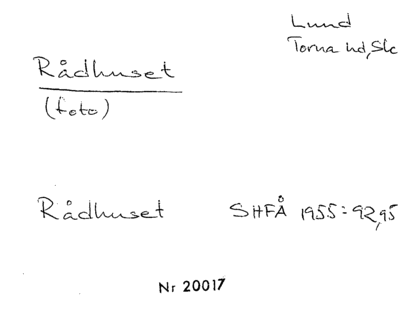 Lund
Torna hd, Sk
Rådhuset
(foto)
Rådhuset SHFÅ 1955: 92,95
Nr 20017